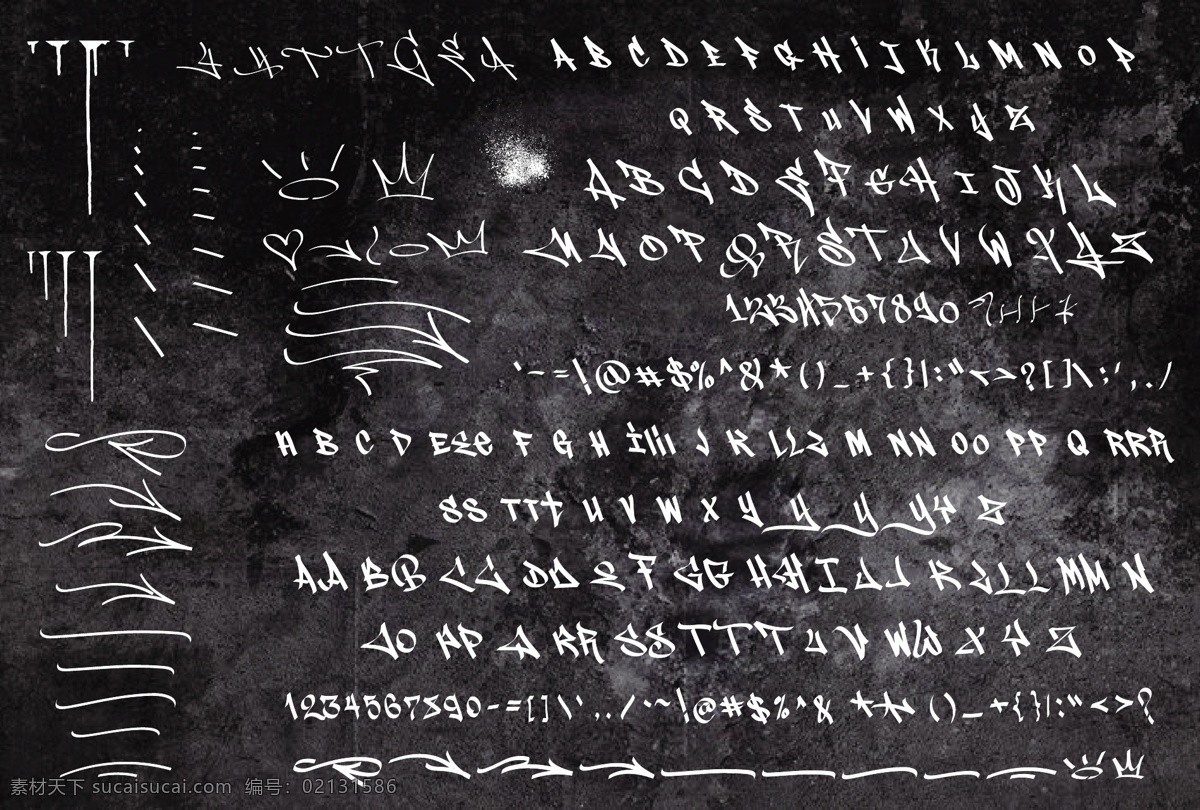 A B C D E F G H I J K L M N O P
Q R S T U V W X Y Z
A B C D E F G H I J K L
M N O P Q R S T U V W X Y Z
1234567890
`-=!@#$%^&*()_+{}|:"<>?[]\;',./
A B C D EEE F G H IIII J K LLL M NN OO PP Q RRR
SS TTt U V W X Y Y Y YY Z
AA BB CC DD E F GG HH I J J K L L L MM N
OO PP Q RR SS TTT U V WW X Y Z
1234567890-=[]\',./`~!@#$%^& ** ()_+{}|:"<>?
素材天下 sucaisucai.com 编号：02131586